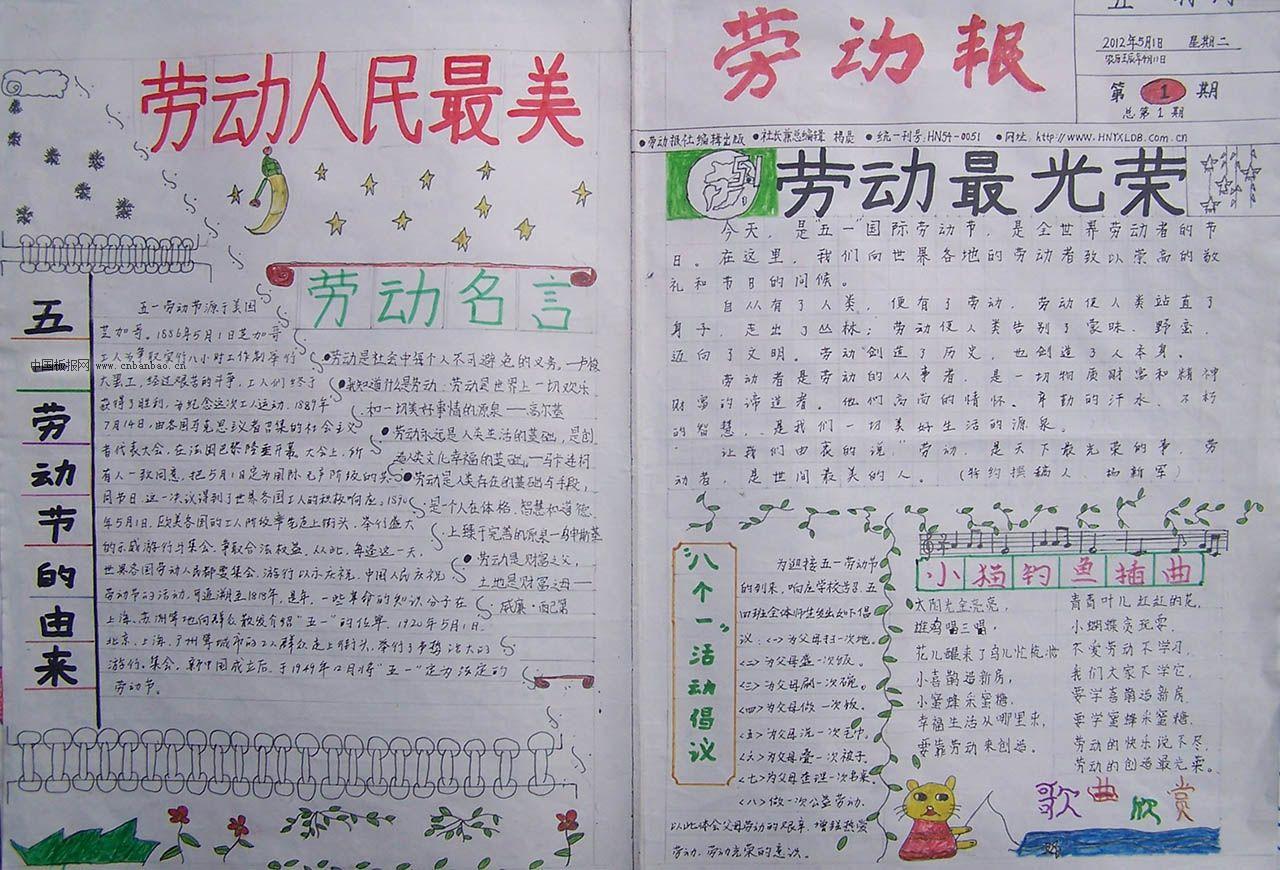 劳动人民最美
劳动名言
五一劳动节的由来
中国板报网
www.cnbanbao.cn
五一劳动节源于美国
芝加哥。1886年5月1日芝加哥
工人为争取实行八小时工作制举行
大罢工，经过艰苦的斗争，工人们终于
获得了胜利。为纪念这次工人运动，1889年
7月14日，由各国马克思主义者召集的社会主义
者代表大会，在法国巴黎隆重开幕。大会上，所
有人一致同意，把5月1日定为国际无产阶级的共
同节日。这一决议得到了世界各国工人的积极响应。1890
年5月1日，欧美各国的工人阶级率先走上街头，举行盛大
的示威游行与集会，争取合法权益。从此，每逢这一天，
世界各国劳动人民都要集会、游行以示庆祝。中国人民庆祝
劳动节的活动，可追溯至1918年，是年，一些革命的知识分子在
上海、苏州等地向群众散发介绍“五一”的传单。1920年5月1日，
北京、上海、广州等城市的工人群众走上街头，举行了声势浩大的
游行、集会。新中国成立后，于1949年12月将“五一”定为法定的
劳动节。
●劳动是社会中每个人不可避免的义务。—卢梭
●我知道什么是劳动：劳动是世界上一切欢乐
和一切美好事情的源泉——高尔基
●劳动永远是人类生活的基础，是创
造人类文化幸福的基础。——马卡连柯
●劳动是人类存在的基础与手段，
是一个人在体格、智慧和道德
上臻于完善的源泉—乌申斯基
●劳动是财富之父，
土地是财富之母——
威廉·西配第
劳动报
2012年5月1日 星期二
农历壬辰年4月11日
第1期
总第1期
●劳动报社编辑出版 ●社长兼总编辑 杨晨 ●统一刊号：HN54-0051 ●网址：http://www.HNYXLDB.com.cn
劳动最光荣
今天，是“五一”国际劳动节，是全世界劳动者的节
日。在这里，我们向世界各地的劳动者致以崇高的敬
礼和节日的问候。
自从有了人类，便有了劳动，劳动使人类站直了
身子，走出了丛林；劳动使人类告别了蒙昧、野蛮，
迈向了文明。劳动创造了历史，也创造了人本身。
劳动者是劳动的从事者，是一切物质财富和精神
财富的缔造者。他们高尚的情怀、辛勤的汗水、不朽
的智慧，是我们一切美好生活的源泉。
让我们由衷的说“劳动，是天下最光荣的事，劳
动者，是世间最美的人。（特约撰稿人 杨新军）
“八个一”活动倡议
为迎接五一劳动节
的到来，响应学校号召，五
四班全体师生发出如下倡
议：<一>为父母扫一次地。
<二>为父母盛一次饭。
<三>为父母刷一次碗。
<四>为父母做一次饭。
<五>为父母洗一次毛巾。
<六>为父母叠一次被子。
<七>为父母整理一次书桌。
<八>做一次公益劳动。
以此体会父母劳动的艰辛，增强热爱
劳动、劳动光荣的意识。
小猫钓鱼插曲
太阳光金亮亮，
雄鸡唱三唱，
花儿醒来了鸟儿忙梳妆
小喜鹊造新房，
小蜜蜂采蜜糖，
幸福生活从哪里来，
要靠劳动来创造。
青青叶儿红红的花，
小蝴蝶贪玩耍，
不爱劳动不学习，
我们大家不学它，
要学喜鹊造新房，
要学蜜蜂采蜜糖，
劳动的快乐说不尽，
劳动的创造最光荣。
歌曲欣赏